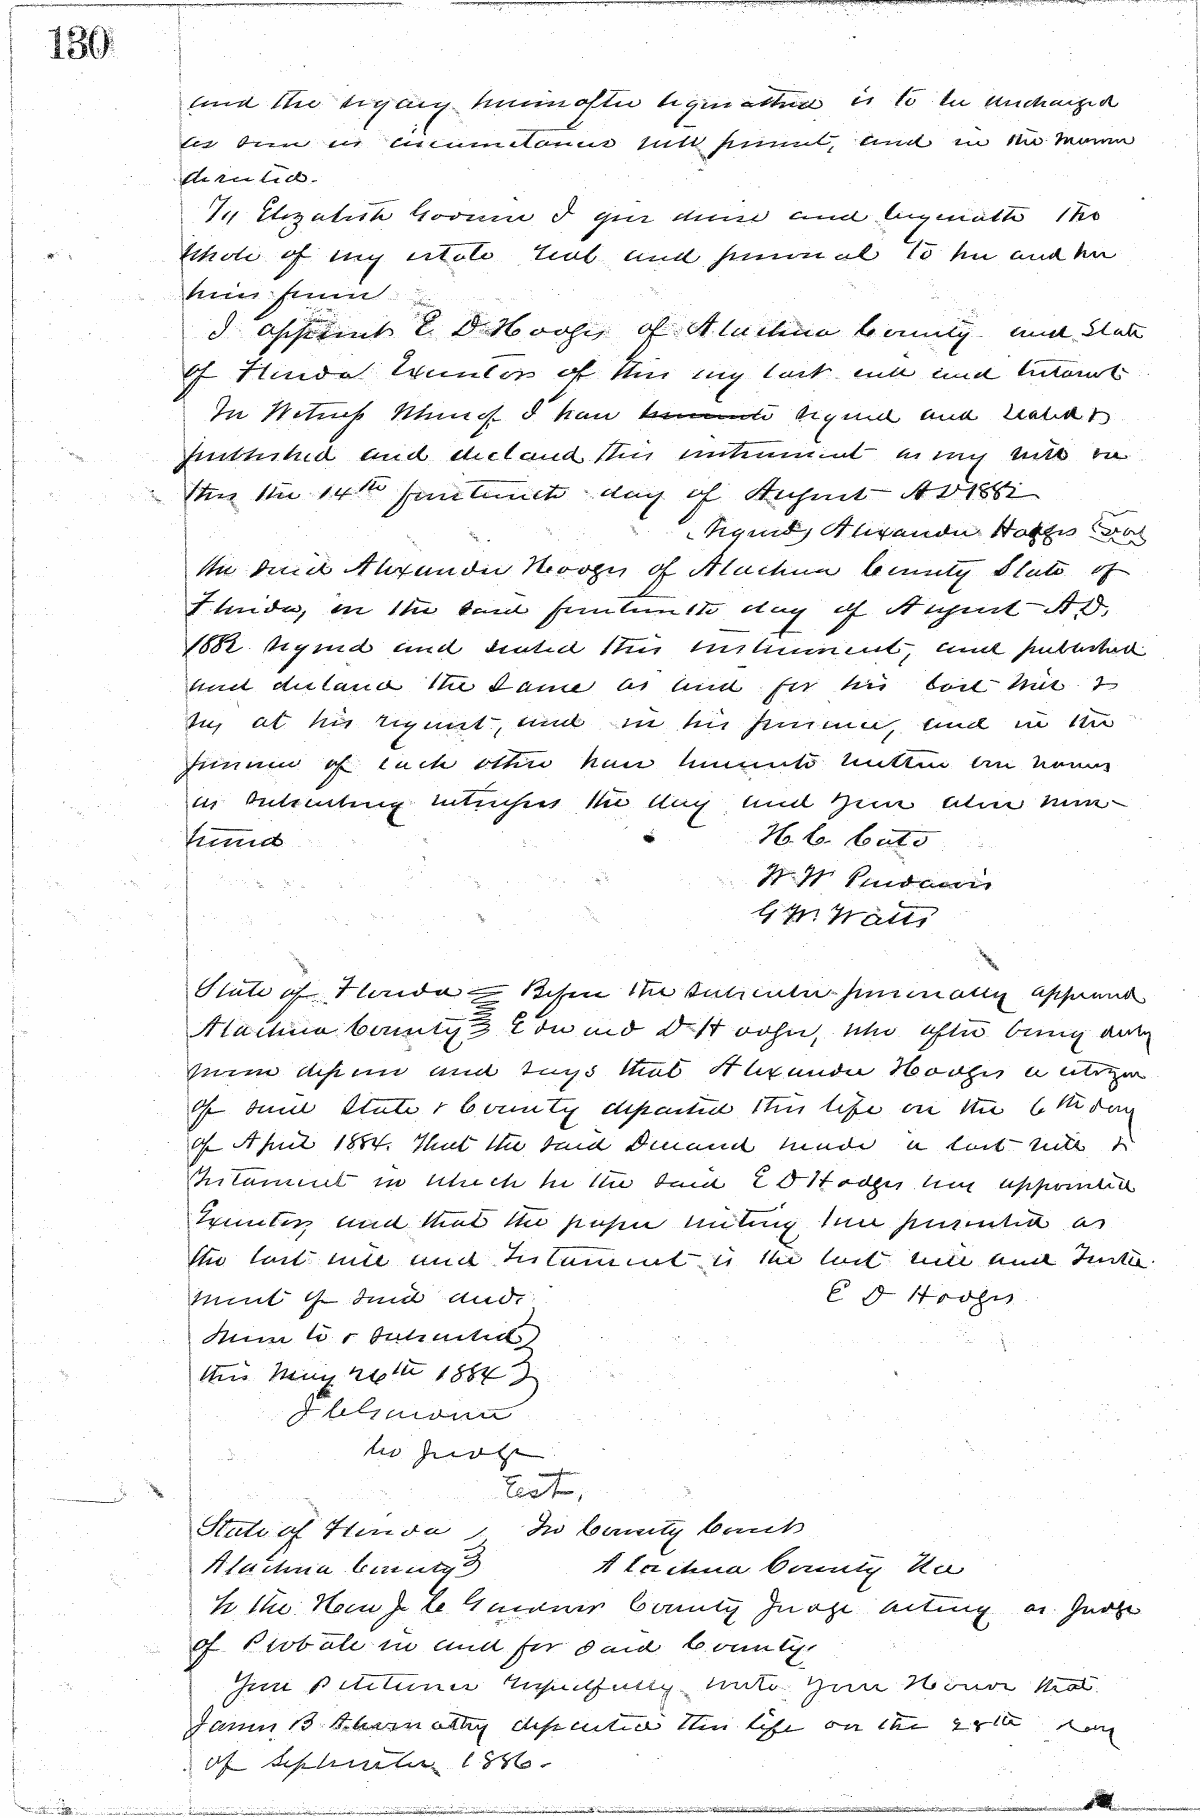 130
and the legacy hereinafter bequeathed is to be discharged
as soon as circumstances will permit, and in the manner
directed.
To Elizabeth I give devise and bequeath the
whole of my estate real and personal to her and her
heirs forever
I appoint E D Hodges of Alachua County and State
of Florida Executor of this my last will and testament
In Witness Whereof I have hereunto signed and sealed &
published and declared this instrument as my will on
this the 14th fourteenth day of August A D 1882
(Signed) Alexander Hodges Seal
the said Alexander Hodges of Alachua County State of
Florida, on the said fourteenth day of August A.D.
1882 signed and sealed this instrument, and published
and declared the same as and for his last will &
we, at his request, and in his presence, and in the
presence of each other have hereunto written our names
as subscribing witnesses the day and year above men-
tioned
H. C. Cato
W. W.
G W. Watts
State of Florida Before the subscriber personally appeared
Alachua County Edward D Hodges, who after being duly
sworn depose and says that Alexander Hodges a citizen
of said State & County departed this life on the 6th day
of April 1884. That the said Deceased made a last will &
Testament in which he the said E D Hodges was appointed
Executor, and that the paper writing here presented as
the last will and Testament is the last will and Testa-
ment of said decd.
E D Hodges
Sworn to & subscribed
this May 26th 1884
J C Gardner
Co Judge
Test,
State of Florida In County Court
Alachua County Alachua County Fla
To the Hon J. C Gardner County Judge acting as Judge
of Probate in and for said County.
Your Petitioner respectfully unto your Honor that
James B Abernathy departed this life on the 28th day
of September 1886.